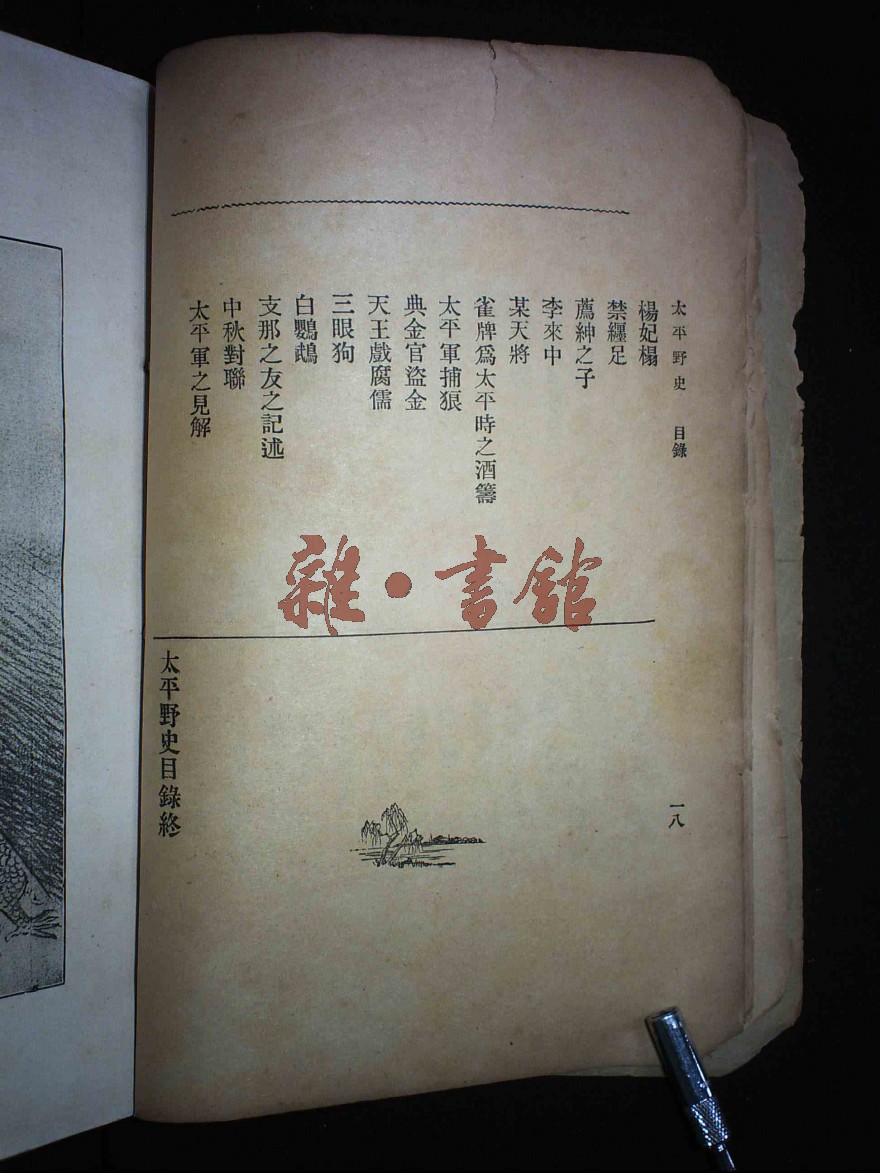 太平野史 目錄
楊妃榻
禁纒足
薦紳之子
李來中
某天將
雀牌爲太平時之酒籌
太平軍捕狼
典金官盜金
天王戲腐儒
三眼狗
白鸚鵡
支那之友之記述
中秋對聯
太平軍之見解
太平野史目錄終
一八
雜·書館